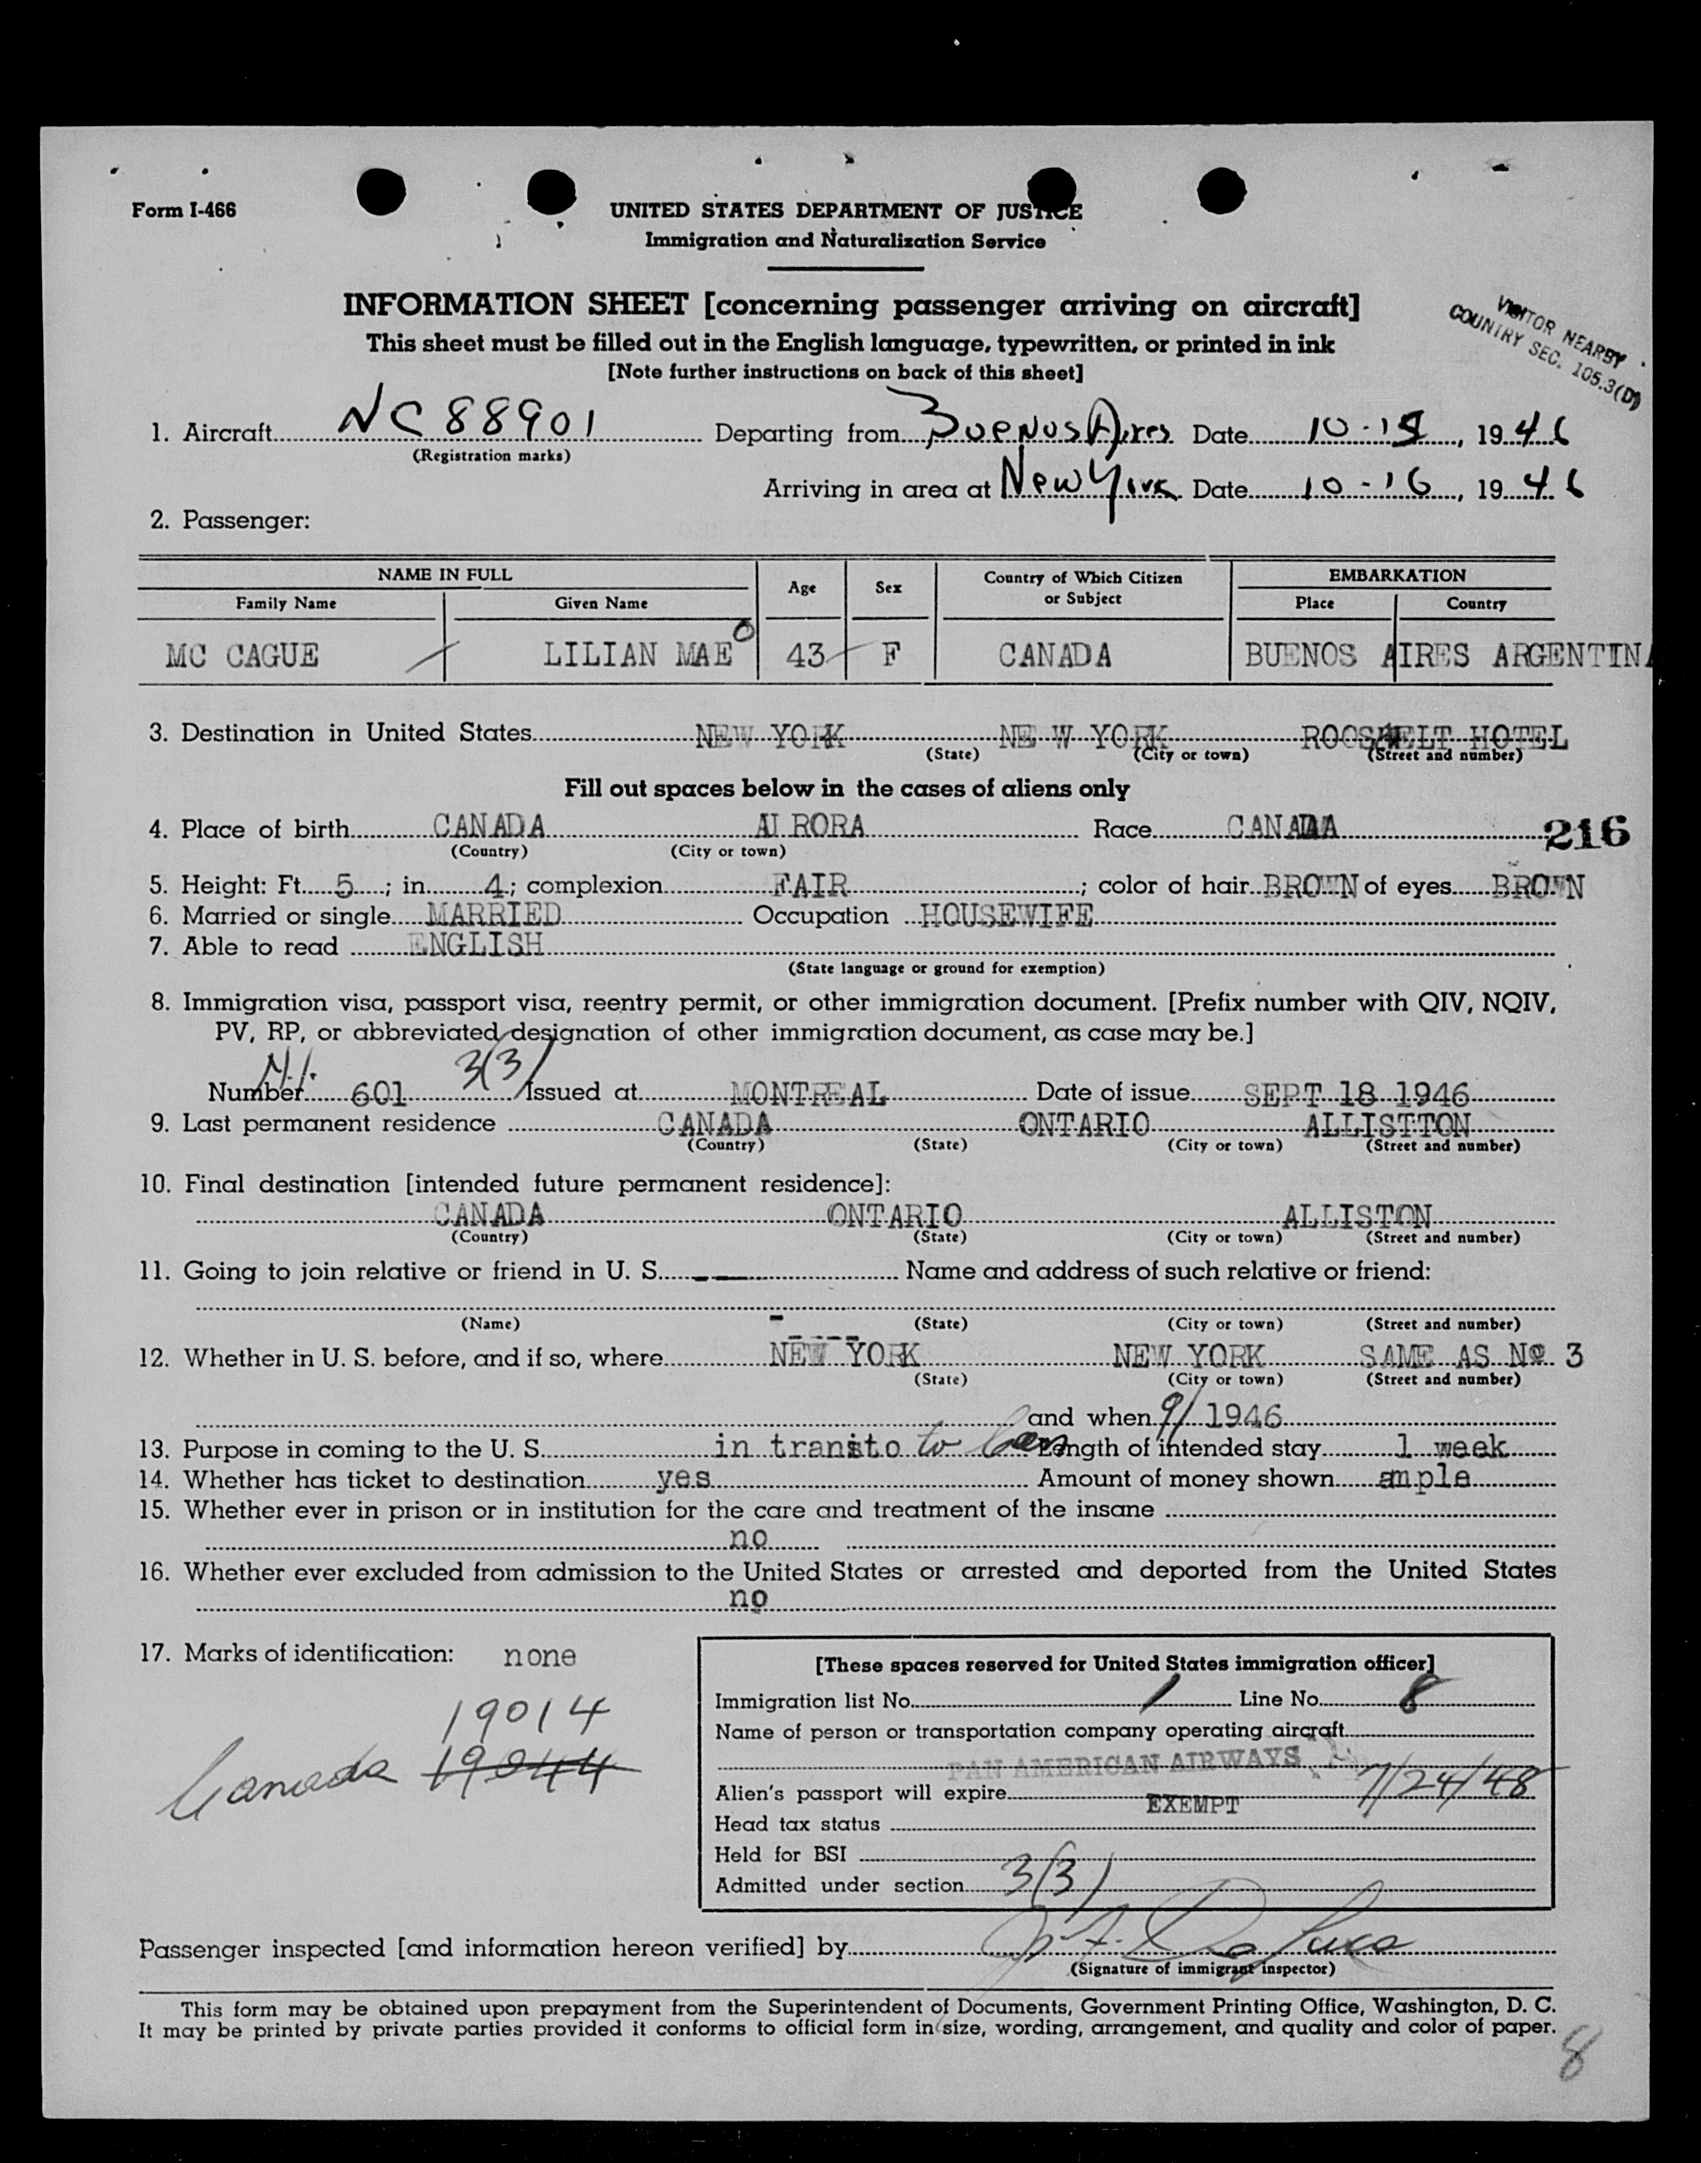 Form I-466
UNITED STATES DEPARTMENT OF JUSTICE
Immigration and Naturalization Service
INFORMATION SHEET [concerning passenger arriving on aircraft]
This sheet must be filled out in the English language, typewritten, or printed in ink
[Note further instructions on back of this sheet]
VISITOR NEARBY
COUNTRY SEC. 105.3(D)
1. Aircraft NC88901 Departing from Buenos Aires Date 10-15, 1946
(Registration marks)
Arriving in area at New York Date 10-16, 1946
2. Passenger:
NAME IN FULL Age Sex Country of Which Citizen or Subject EMBARKATION
Family Name Given Name Place Country
MC CAGUE LILIAN MAE 43 F CANADA BUENOS AIRES ARGENTINA
3. Destination in United States NEW YORK NE W YORK ROOSVELT HOTEL
(State) (City or town) (Street and number)
Fill out spaces below in the cases of aliens only
4. Place of birth CANADA AU RORA Race CANADA 216
(Country) (City or town)
5. Height: Ft. 5; in. 4; complexion FAIR; color of hair BROWN of eyes BROWN
6. Married or single MARRIED Occupation HOUSEWIFE
7. Able to read ENGLISH
(State language or ground for exemption)
8. Immigration visa, passport visa, reentry permit, or other immigration document. [Prefix number with QIV, NQIV,
PV, RP, or abbreviated designation of other immigration document, as case may be.]
Number 601 3(3) Issued at MONTREAL Date of issue SEPT 18 1946
9. Last permanent residence CANADA ONTARIO ALLISTTON
(Country) (State) (City or town) (Street and number)
10. Final destination [intended future permanent residence]:
CANADA ONTARIO ALLISTON
(Country) (State) (City or town) (Street and number)
11. Going to join relative or friend in U. S. Name and address of such relative or friend:
(Name) (State) (City or town) (Street and number)
12. Whether in U. S. before, and if so, where NEW YORK NEW YORK SAME AS No 3
(State) (City or town) (Street and number)
and when 9/ 1946
13. Purpose in coming to the U. S. in transito to Can Length of intended stay 1 week
14. Whether has ticket to destination yes Amount of money shown ample
15. Whether ever in prison or in institution for the care and treatment of the insane
no
16. Whether ever excluded from admission to the United States or arrested and deported from the United States
no
17. Marks of identification: none
19014
Canada 19044
[These spaces reserved for United States immigration officer]
Immigration list No. 1 Line No. 8
Name of person or transportation company operating aircraft
PAN AMERICAN AIRWAYS
Alien's passport will expire 7/24/48
EXEMPT
Head tax status
Held for BSI
Admitted under section 3(3)
Passenger inspected [and information hereon verified] by
(Signature of immigrant inspector)
This form may be obtained upon prepayment from the Superintendent of Documents, Government Printing Office, Washington, D. C.
It may be printed by private parties provided it conforms to official form in size, wording, arrangement, and quality and color of paper.
8